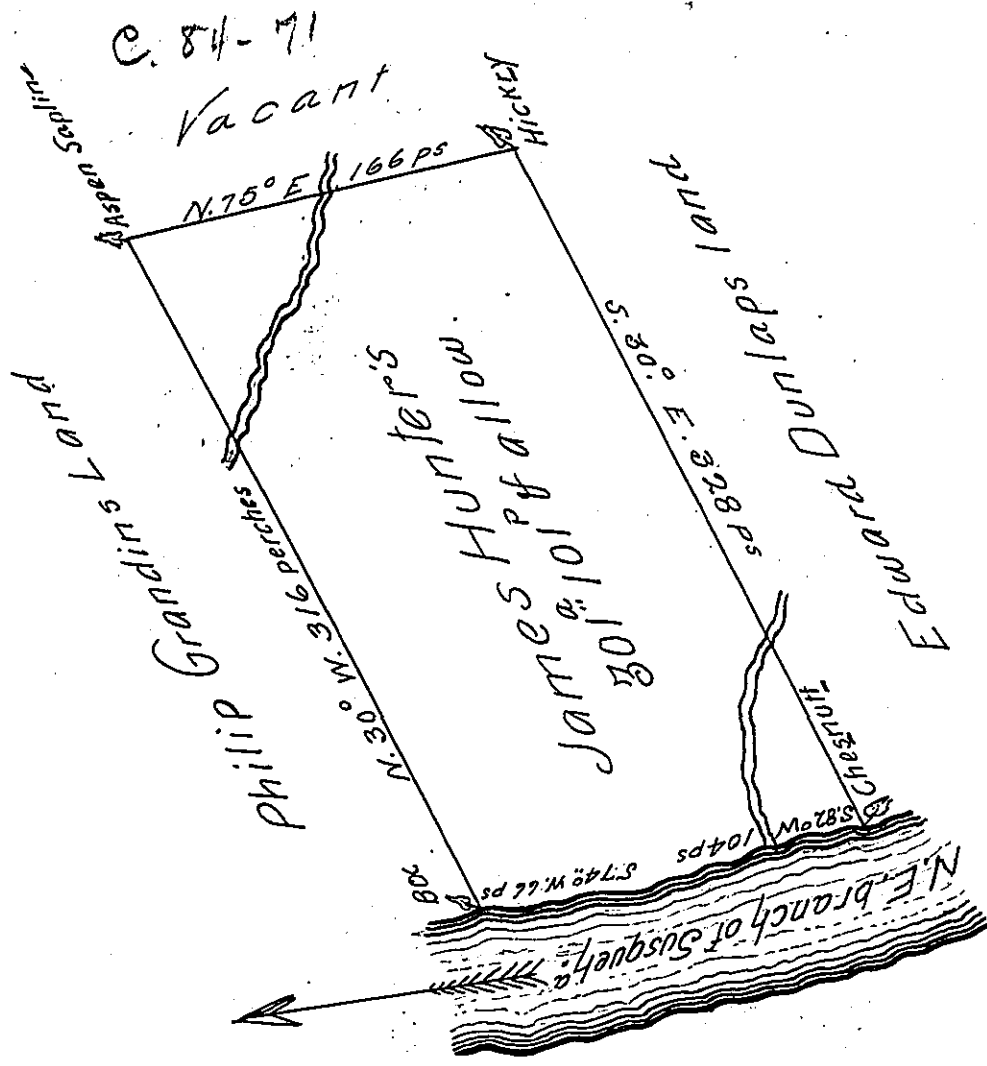 C. 84-71
Vacant
Aspen Saplins
Hickry
N. 75° E 166 ps
Philip Grandins Land
N. 30° W. 316 perches
James Hunter's
301.a 101 P & allow.
S. 30.° E. 328 ps
Edward Dunlaps land
Chesnutt
S. 82° W 104 ps
S. 74° W. 66 ps
N.E. branch of Susqueh.a